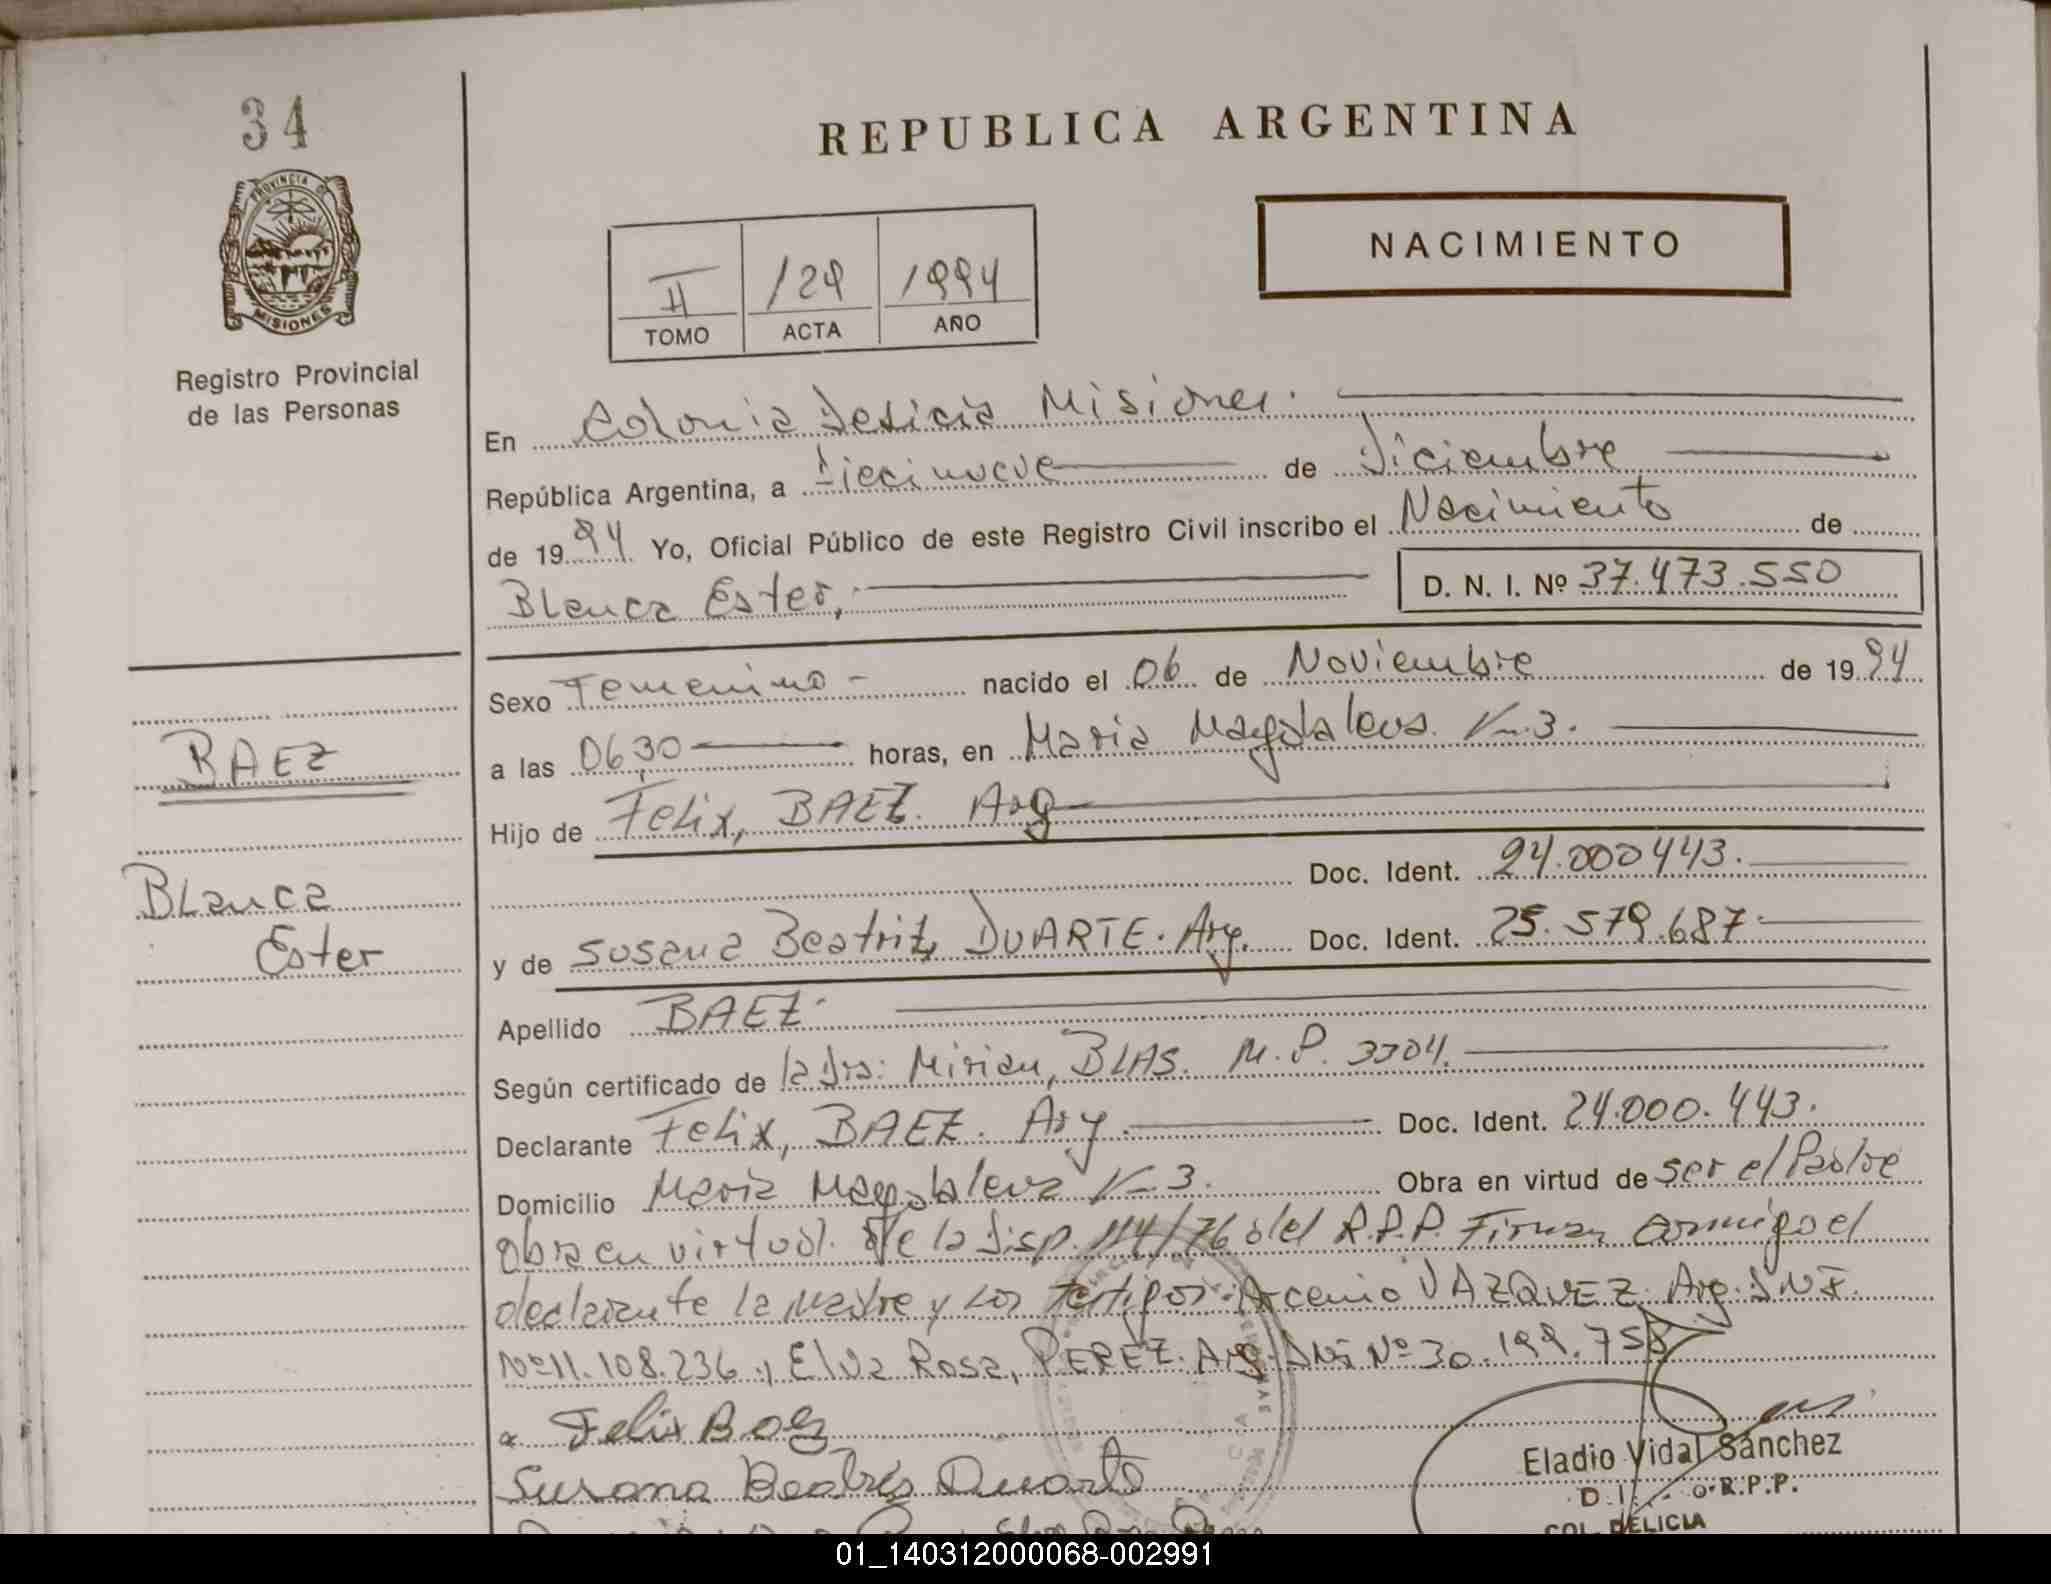 34
REPUBLICA ARGENTINA
PROVINCIA DE
MISIONES
Registro Provincial
de las Personas
NACIMIENTO
II 129 1994
TOMO ACTA AÑO
En Colonia Delicia Misiones.
República Argentina, a Diecinueve de Diciembre
de 1994 Yo, Oficial Público de este Registro Civil inscribo el Nacimiento de
Blanca Ester,
D. N. I. Nº 37.473.550
Sexo Femenino - nacido el 06 de Noviembre de 1994
a las 06,30 horas, en Maria Magdalena Km 3.
BAEZ
Hijo de Felix, BAEZ. Arg
Doc. Ident. 24.000443.
Blanca
Ester
y de Susana Beatriz, DUARTE. Arg. Doc. Ident. 25.579.687
Apellido BAEZ
Según certificado de la Dra: Mirian, BLAS. M.P. 3304.
Declarante Felix, BAEZ. Arg. Doc. Ident. 24.000.443.
Domicilio Maria Magdalena Km 3. Obra en virtud de ser el Padre
Obra en virtud. De la Disp. 114/76 del R.P.P. Firman conmigo el
declarante la Madre y los testigos: Arcenio VAZQUEZ. Arg. DNI.
Nº 11.108.236 y Elva Rosa, PEREZ. Arg. DNI Nº 30.199.758
Felix Baez
Susana Beatris Duarte
Eladio Vidal Sánchez
O.R.P.P.
COL. DELICIA
01_140312000068-002991